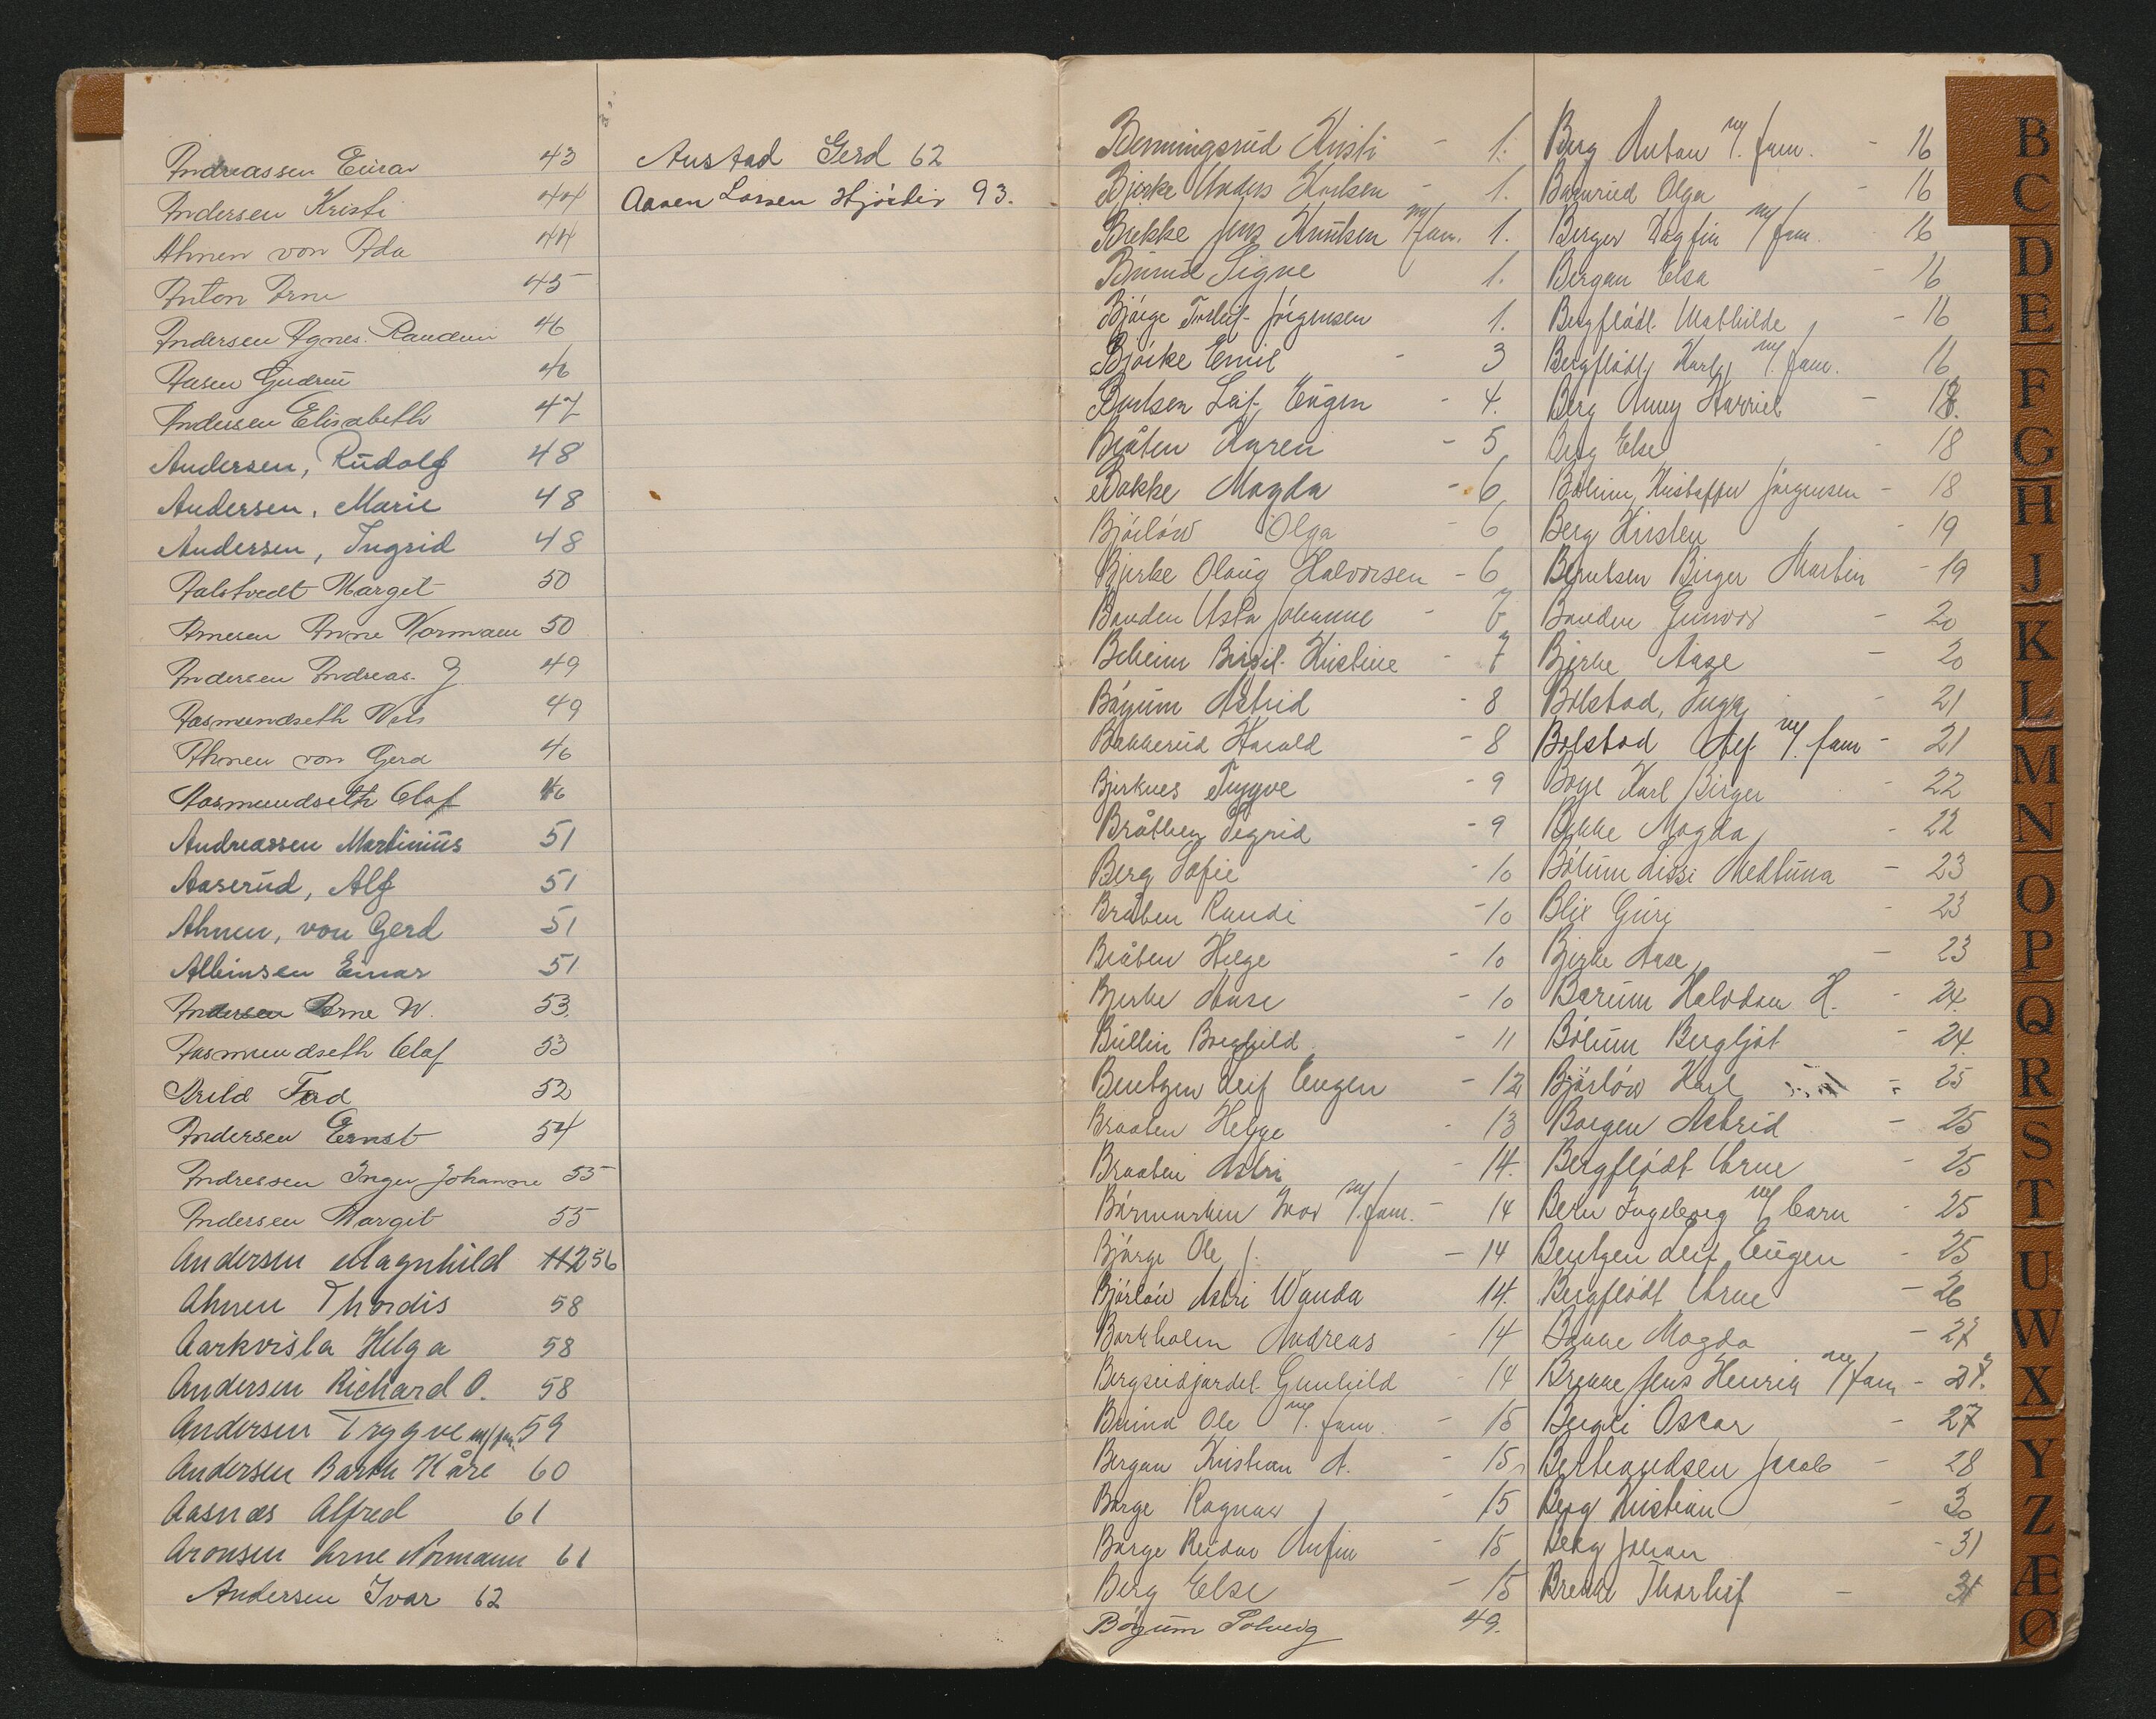 Andreassen Einar 43
Andersen Kristi 44
Ahnen von Ada 44
Anton Arne 45
Andersen Agnes Raudun 46
Aasen Gudrun 46
Andersen Elisabeth 47
Andersen, Rudolf 48
Andersen, Marie 48
Andersen, Ingrid 48
Aalstvedt Margit 50
Arnesen Arne Normann 50
Andersen Andreas. J. 49
Aasmundseth Nels 49
Ahnen von Gerd 46
Aasmundseth Olaf 46
Andreassen Martinius 51
Aaserud, Alf 51
Ahnen, von Gerd 51
Albinsen Einar 51
Andersen Arne W. 53.
Aasmundseth Olaf 53
Arild Ford 52
Andersen Ernst 54
Andressen Inger Johanne 55
Andersen Margit 55
Andersen Magnhild 56
Ahnen Thordis 58
Aarkvisla Helga 58
Andersen Richard O. 58
Andersen Trygve m/fam. 59
Andersen Barth Kåre 60
Aasnæs Alfred 61
Aronsen Arne Normann 61
Andersen Ivar 62
Austad Gerd 62
Aasen Lassen Hjördis 93.
Benningsrud Kristi - 1.
Bjerke Anders Karlsen - 1.
Bække Jens Knutsen m/fam. 1.
Burud Signe 1.
Björge Torleif Jörgensen 1.
Björke Emil - 3
Bentsen Leif Eugen - 4.
Bråten Karen - 5
Bakke Magda - 6
Björlöw Olga - 6
Bjerke Olaug Halvorsen - 6
Banden Asta Johanne - 6
Beheim Birgit Kristine - 7
Böyum Astrid - 8
Bakkerud Harald - 8
Bjerknes Trygve - 9
Bråthen Sigrid - 9
Berg Sofie - 10
Bråten Randi - 10
Bråten Helge - 10
Bjerke Aase - 10
Bullin Borghild - 11
Bentzen Leif Eugen - 12
Braaten Helge - 13
Braaten Astri - 14.
Börmarken Ivar m/fam. - 14
Björge Ole J. - 14
Björlöw Astri Wanda 14.
Borkholm Andreas - 14
Bergseidjordet Gunhild - 14
Burud Ole m/. fam. - 15
Bergan Kristian A. - 15
Borge Ragnar - 15
Borge Reidar Anfin - 15
Berg Else - 15
Böyum Solveig 49.
Berg Anton m/. fam. - 16
Bamrud Olga - 16
Berger Dagfin m/fam. - 16
Bergan Elsa - 16
Bergflødt Mathilde - 16
Bergflødt, Karl, m/. fam. 16
Berg Anny Harriet - 18.
Berg Else - 18
Bölum, Kristoffer Jörgensen - 18
Berg Kirsten - 19
Berntsen Birger Martin - 19
Banden Gunvor - 20
Bjerke Aase - 20
Bolstad, Inga - 21
Bolstad Alf m/. fam - 21
Boye Karl Birger - 22
Bakke Magda - 22
Bölum Lissi Medtuna - 23
Blix Guri - 23
Bjerke Aase - 23
Bærum Halvdan H. - 24.
Bölum Bergljot - 24.
Björlöw Karl - 25
Borgen Astrid - 25
Bergflødt Arne - 25
Bern Ingeborg m/ barn - 25
Bentzen Leif Eugen - 25
Bergflødt Arne - 26
Bakke Magda - 27
Brekke Jens Henrik m/fam - 27.
Bergli Oscar - 27
Bertrandsen Jacob - 28
Berg Kristian - 30
Berg Johan - 31
Brekke Thorleif - 31
B
C
D
E
F
G
H
J
K
L
M
N
O
P
Q
R
S
T
U
W
X
Y
Z
Æ
Ø